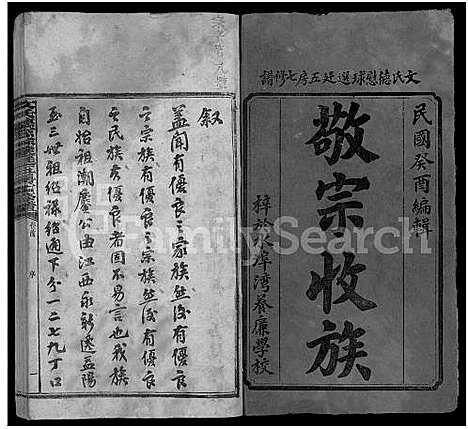 文氏德慰球選廷五房七修譜
民國癸酉編輯
敬宗收族
梓於水埠灣養廉學校
叙
蓋聞有優良之家族然後
有優良之宗族有優良
之宗族然後有優良
之民族者固不易言也我族
自始祖潮廣公由江西永新遷益陽
至三世祖紹祿紹通下分一二七九丁口
序
一
FamilySearch